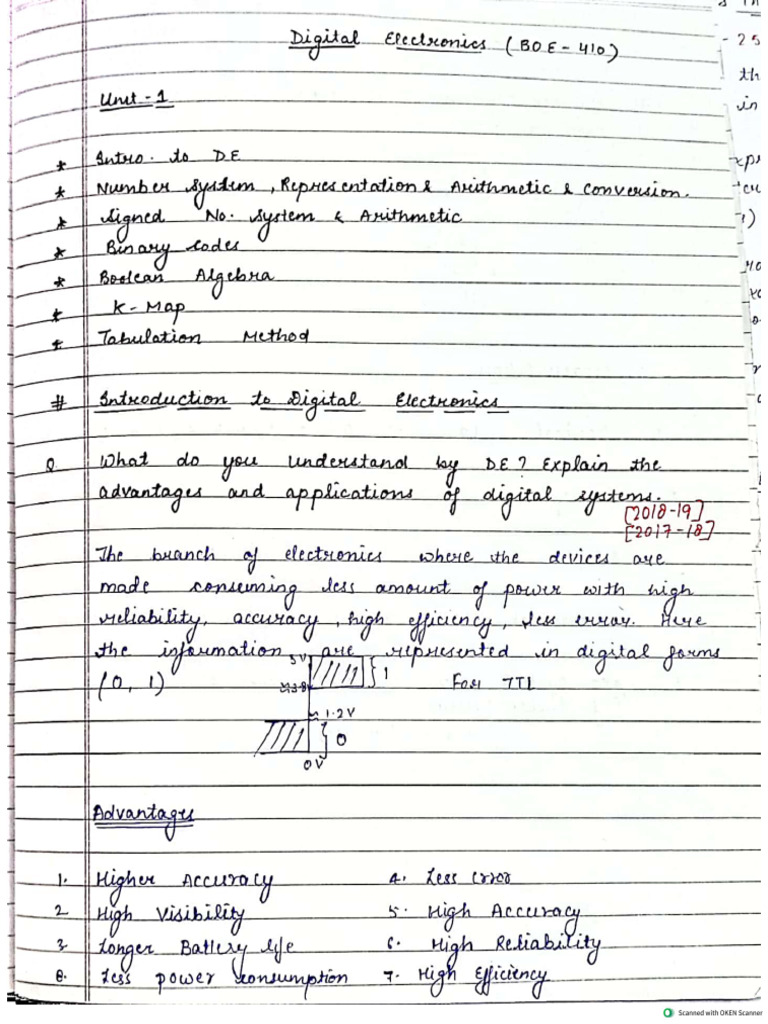 Digital Electronics (BOE-410)
Unit-1
* Intro. to DE
* Number System, Representation & Arithmetic & Conversion.
* Signed No. System & Arithmetic
* Binary Codes
* Boolean Algebra
* K-Map
* Tabulation Method
# Introduction to Digital Electronics
Q. What do you understand by DE? Explain the
advantages and applications of digital systems.
[2018-19]
[2017-18]
The branch of electronics where the devices are
made consuming less amount of power with high
reliability, accuracy, high efficiency, less error. Here
the information are represented in digital forms
(0, 1)
5V
1
For TTL
≈ 1.2V
0
0V
Advantages
1. Higher Accuracy
2 High Visibility
3. Longer Battery life
8. Less power consumption
4. Less Error
5. High Accuracy
6. High Reliability
7. High Efficiency
- 25
th
in
Scanned with OKEN Scanner